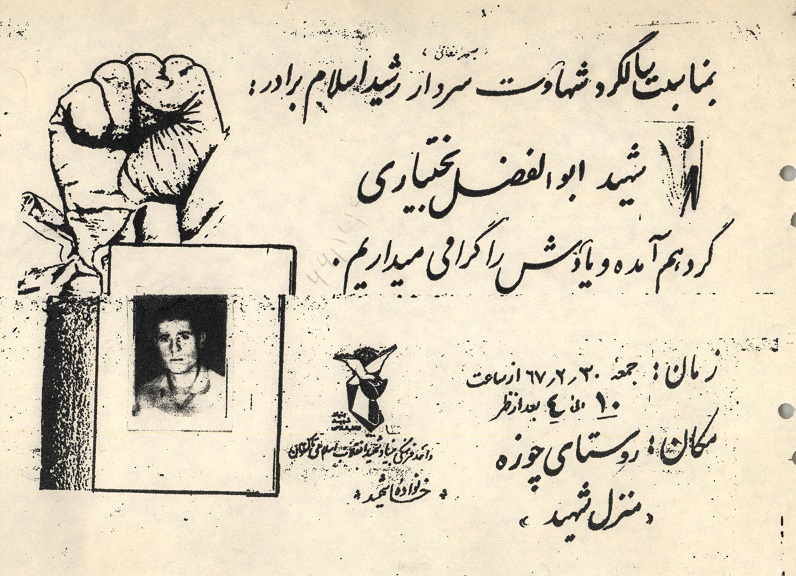 « بسمه تعالی »
بمناسبت سالگرد شهادت سردار رشید اسلام برادر:
شهید ابوالفضل بختیاری
گردهم آمده و یادش را گرامی میداریم.
زمان: جمعه ۶۷٫۲٫۳۰ از ساعت
۱۰ الی ۴ بعد از ظهر
مکان: روستای چوزه
« منزل شهید »
واحد فرهنگی بنیاد شهید انقلاب اسلامی تاکستان
« خانواده شهید »